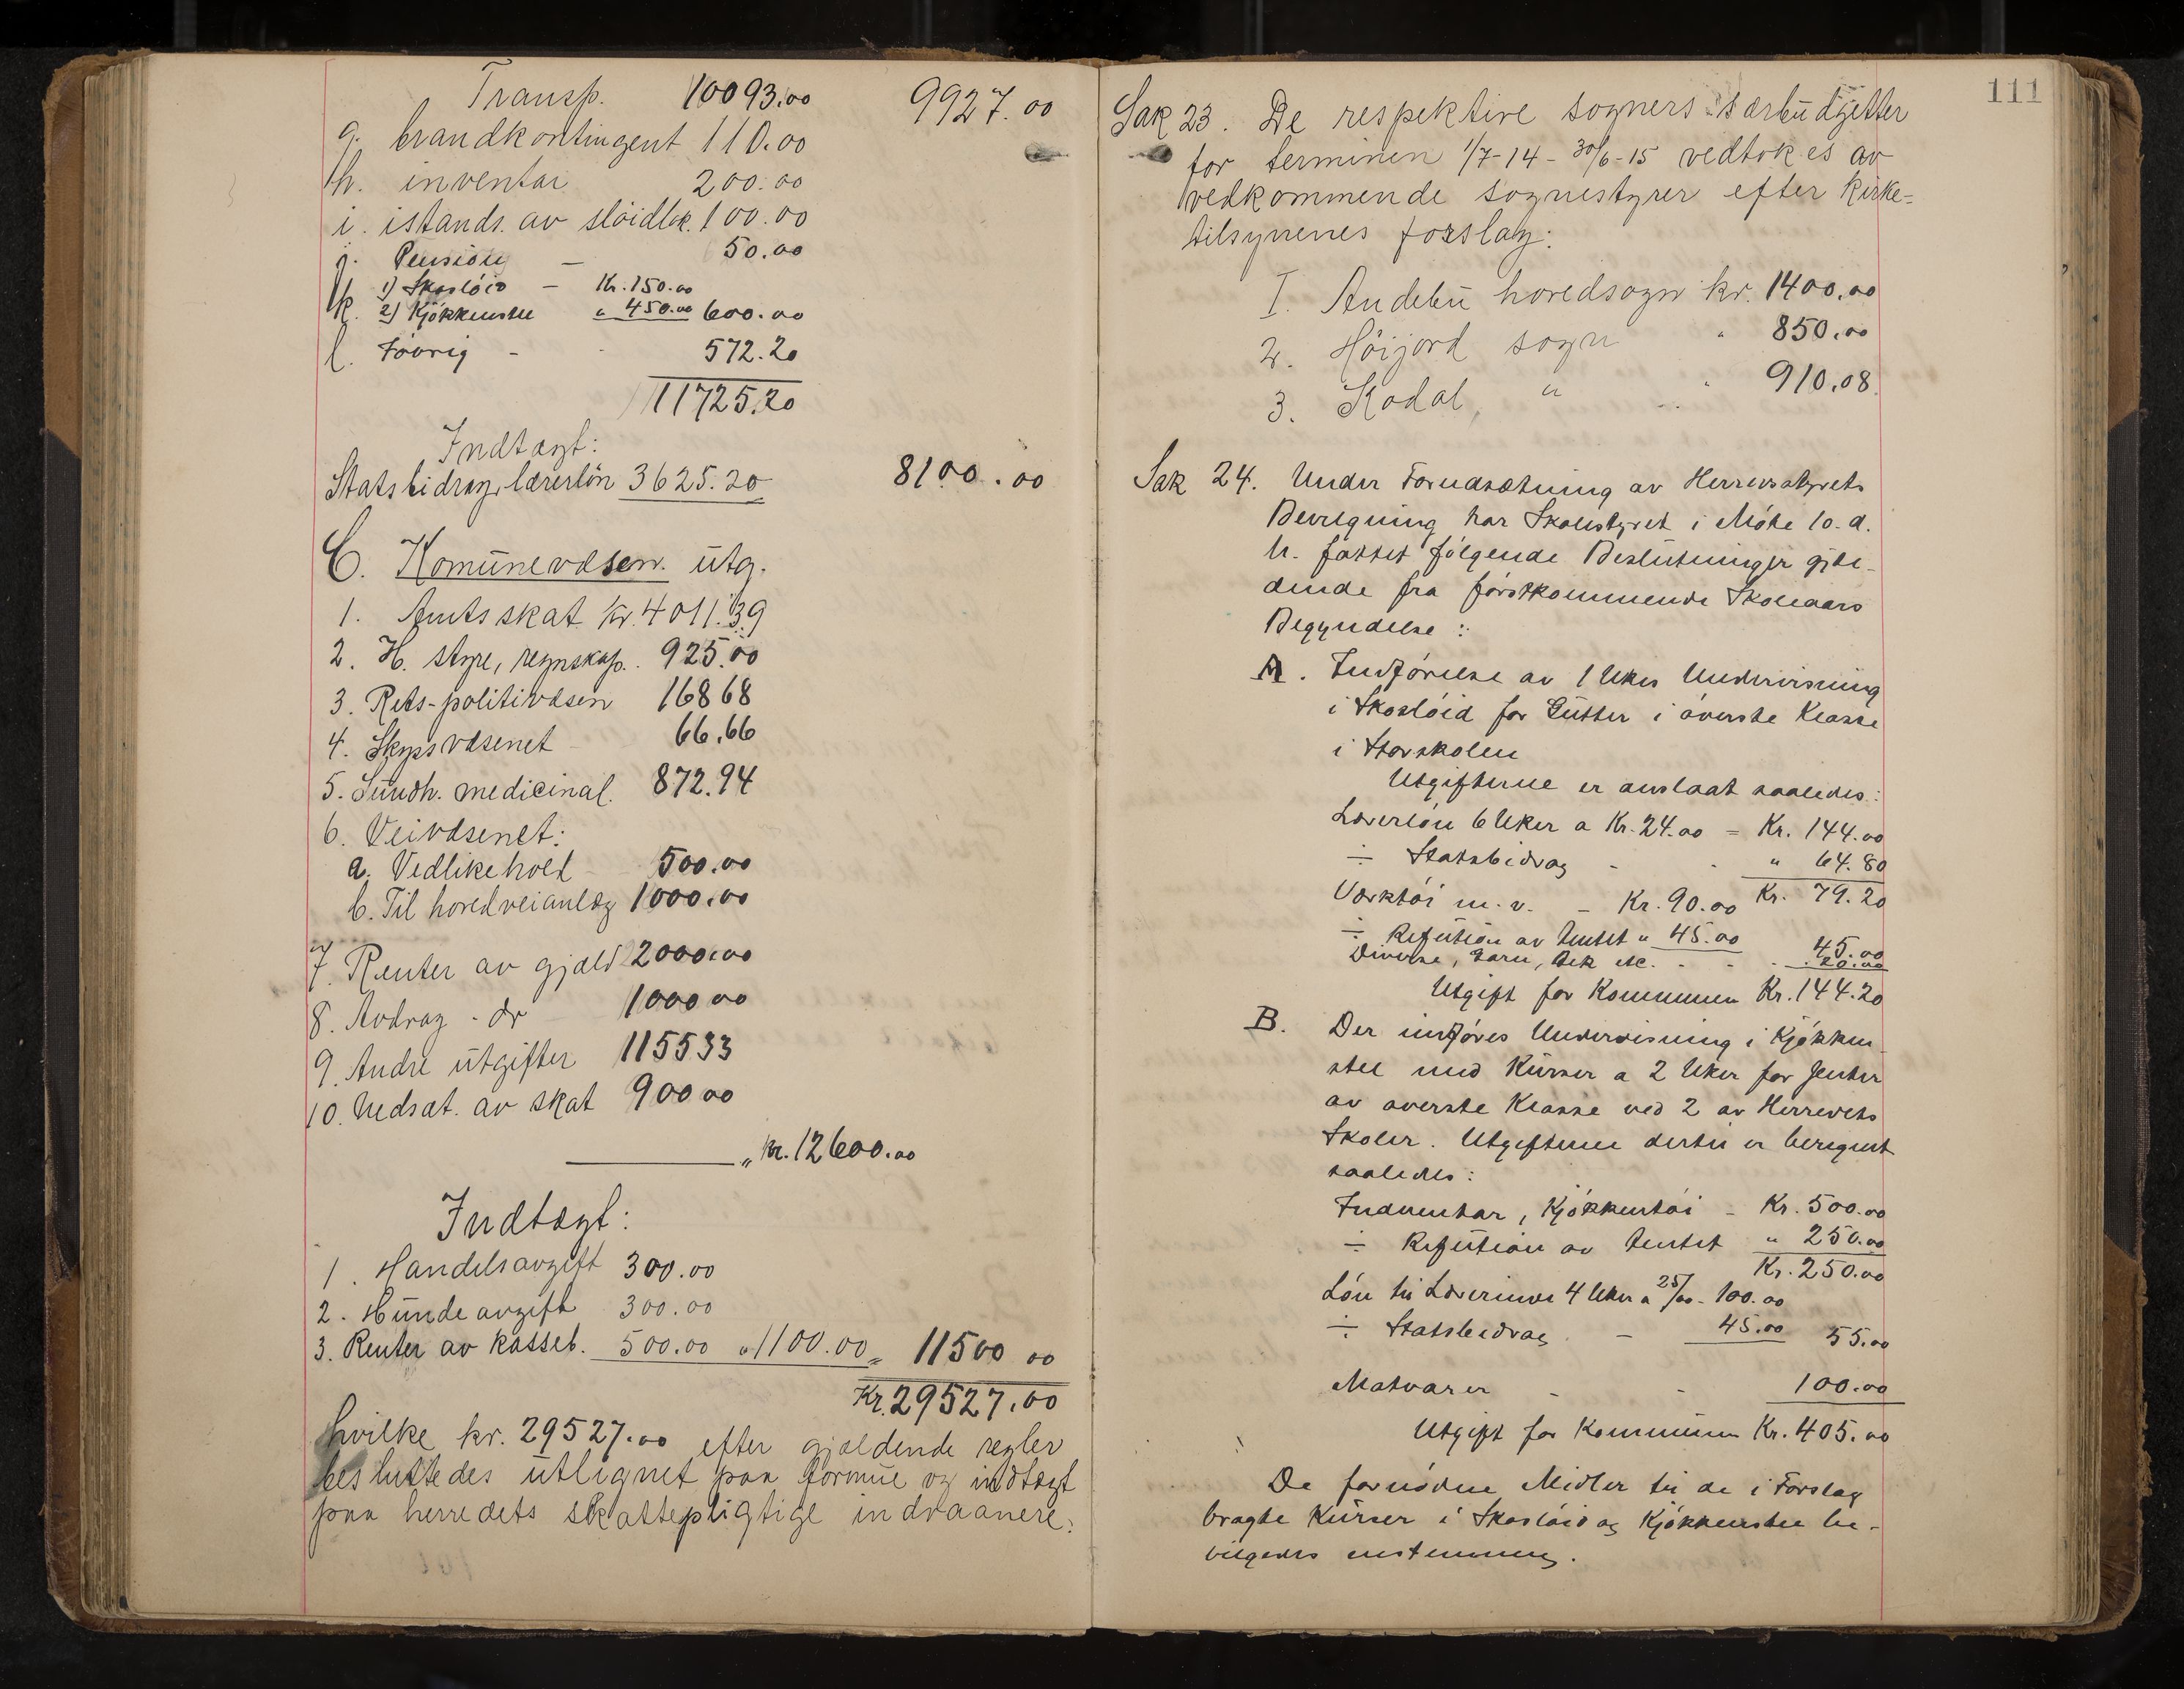 Transp. 10093.00 9927.00
g. brandkontingent 110.00
h. inventar 200.00
i. istands. av slöidlok. 100.00
j. Pension — 50.00
k. 1) Skoslöid — Kr. 150.00
2) Kjökkenstel " 450.00 600.00
l. Forövrig - 572.20
11725.20
Indtægt:
Statsbidrag, lærerlön 3625.20 8100.00
C. Komunevæsen. utg.
1. Amtsskat kr. 4011.39
2. H. styre, regnskap. 925.00
3. Rets-politivæsen 168 68
4. Skyssvæsenet 66.66
5. Sundh. medicinal. 872.94
6. Veivæsenet:
a. Vedlikehold 500.00
b. Til hovedveianlæg 1000.00
7. Renter av gjæld 2000.00
8. Avdrag - dr 1000 00
9. Andre utgifter 1155 33
10. Nedsæt. av skat 900 00
" kr. 12600.00
Indtægt:
1. Handelsavgift 300.00
2. Hundeavgift 300.00
3. Renter av kasseb. 500.00 " 1100.00 = 11500 00
Kr. 29527.00
hvilke kr. 29527.00 efter gjældende regler
besluttedes utlignet paa formue og indtægt
paa herredets skattepligtige indvaanere.
111
Sak 23. De respektive sogners særbudgetter
for terminen 1/7-14 - 30/6-15 vedtokes av
vedkommende sognestyrer efter kirke-
tilsynenes forslag:
I. Andebu hovedsogn kr. 1400.00
2. Höijord sogn " 850.00
3. Kodal, " " 910.08
Sak 24. Under Forudsætning av Herredsstyrets
Bevilgning har Skolestyret i Möte 10. d.
M. fattet følgende Beslutninger gjæl-
dende fra förstkommende Skoleaars
Begyndelse:
A. Indförelse av 1 Ukes Undervisning
i Skoslöid for Gutter i överste Klasse
i Storskolen
Utgifterne er anslaat saaledes:
Lærerlön 6 Uker a Kr. 24.00 = Kr. 144.00
÷ Statsbidrag - - " 64.80
Kr. 79.20
Værktöi m. v. - Kr. 90.00
÷ Refusion av Amtet " 45.00 45.00
Diverse, Garn, Bek etc. - - 20.00
Utgift for Kommunen Kr. 144.20
B. Der indföres Undervisning i Kjökken
stel med Kurser a 2 Uker for Jenter
av överste Klasse ved 2 av Herredets
Skoler. Utgifterne dertil er beregnet
saaledes:
Indventar, Kjökkentöi - Kr. 500.00
÷ Refusion av Amtet " 250.00
Kr. 250.00
Lön til Lærerinde 4 Uker a 25/00 - 100.00
÷ Statsbidrag - 45.00 55.00
Matvarer - - 100.00
Utgift for Kommunen Kr. 405.00
De fornödne Midler til de i Forslag
bragte Kurser i Skoslöid og Kjökkenstel be-
vilgedes enstemmig.